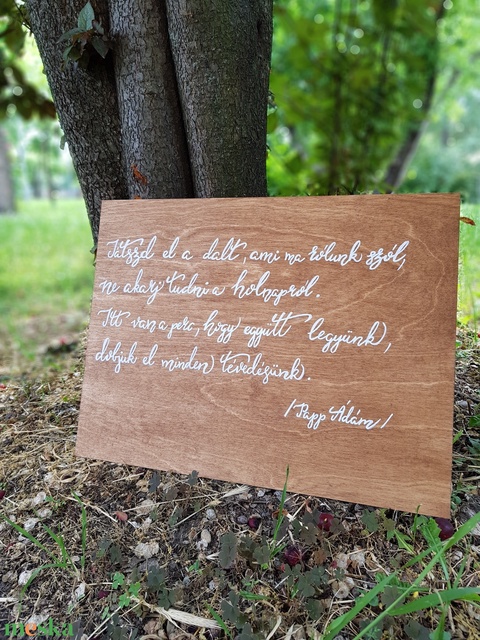 Játszd el a dalt, ami ma rólunk szól,
ne akarj tudni a holnapról.
Itt van a perc, hogy együtt legyünk,
dobjuk el minden tévedésünk.
/Papp Ádám/
meska